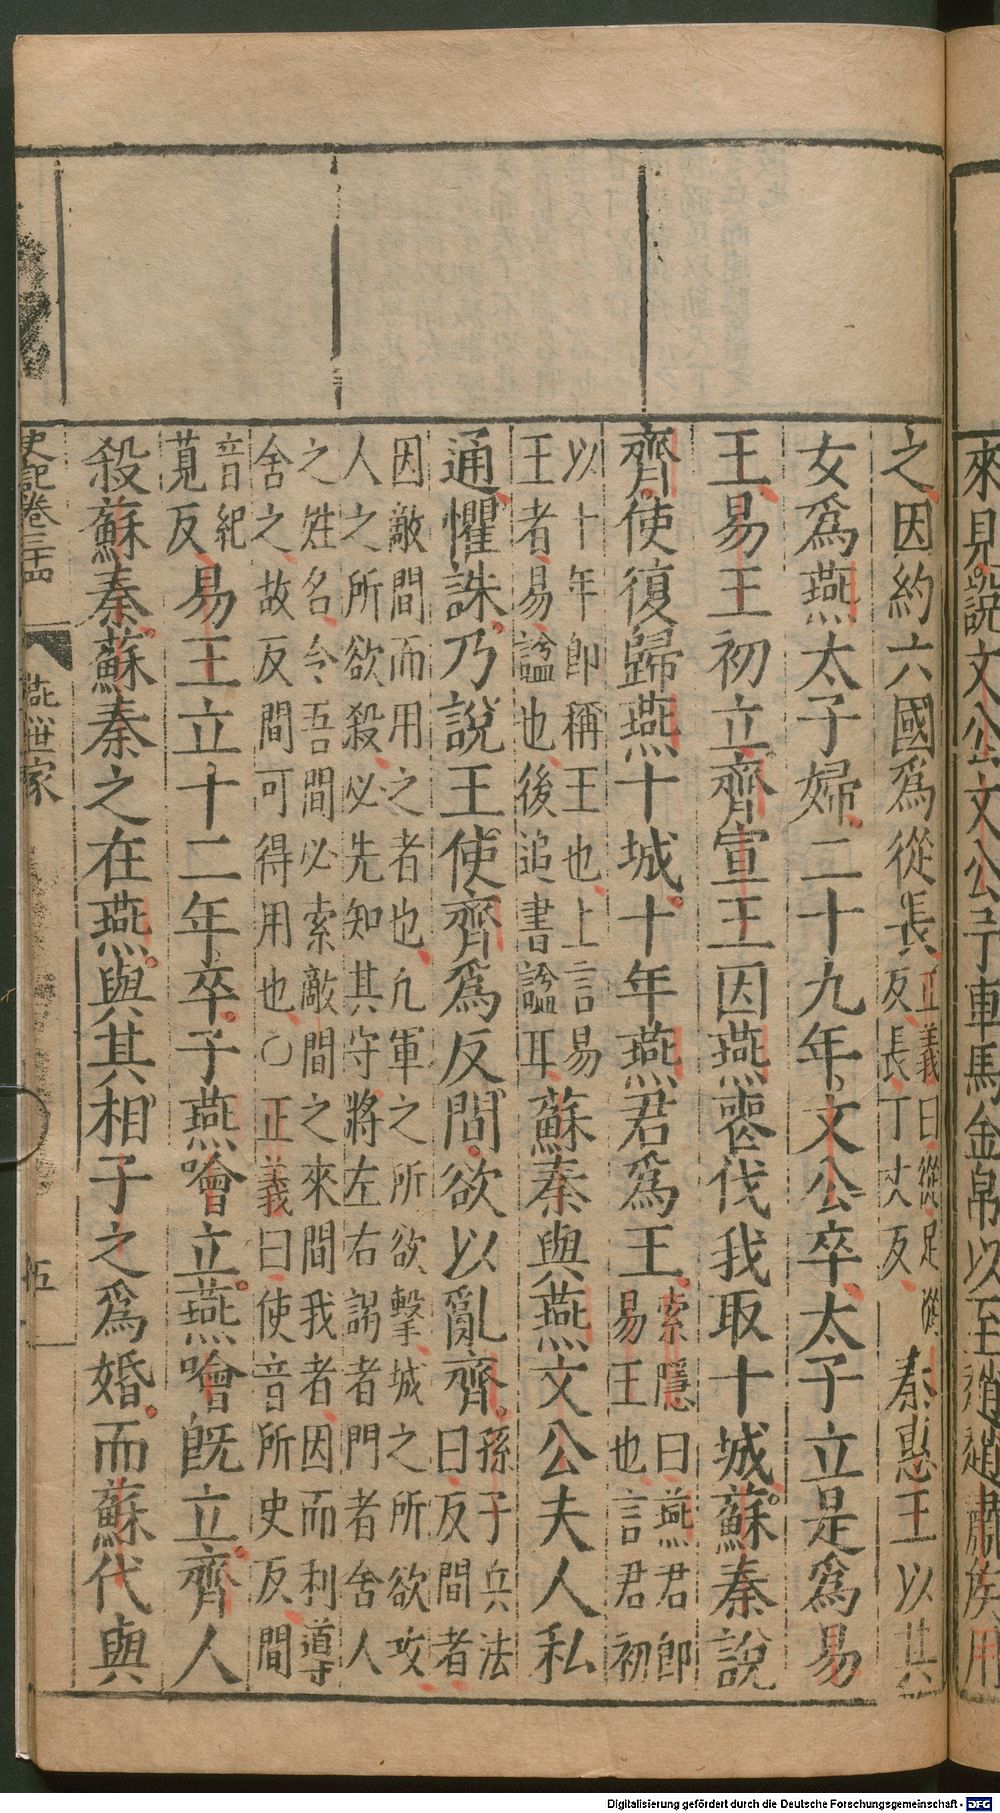 來見說文公文公予車馬金帛以至趙趙肅侯用
之因約六國爲從長正義曰從足從
反長丁丈反秦惠王以其
女爲燕太子婦二十九年文公卒太子立是爲易
王易王初立齊宣王因燕喪伐我取十城蘇秦說
齊使復歸燕十城十年燕君爲王索隱曰燕君即
易王也言君初
以十年即稱王也上言易
王者易謚也後追書謚耳蘇秦與燕文公夫人私
通懼誅乃說王使齊爲反間欲以亂齊孫子兵法
曰反間者
因敵間而用之者也凡軍之所欲擊城之所欲攻
人之所欲殺必先知其守將左右謁者門者舍人
之姓名令吾間必索敵間之來間我者因而利導
舍之故反間可得用也○正義曰使音所史反間
音紀
莧反易王立十二年卒子燕噲立燕噲旣立齊人
殺蘇秦蘇秦之在燕與其相子之爲婚而蘇代與
史記卷三十四 燕世家 五
Digitalisierung gefördert durch die Deutsche Forschungsgemeinschaft - DFG